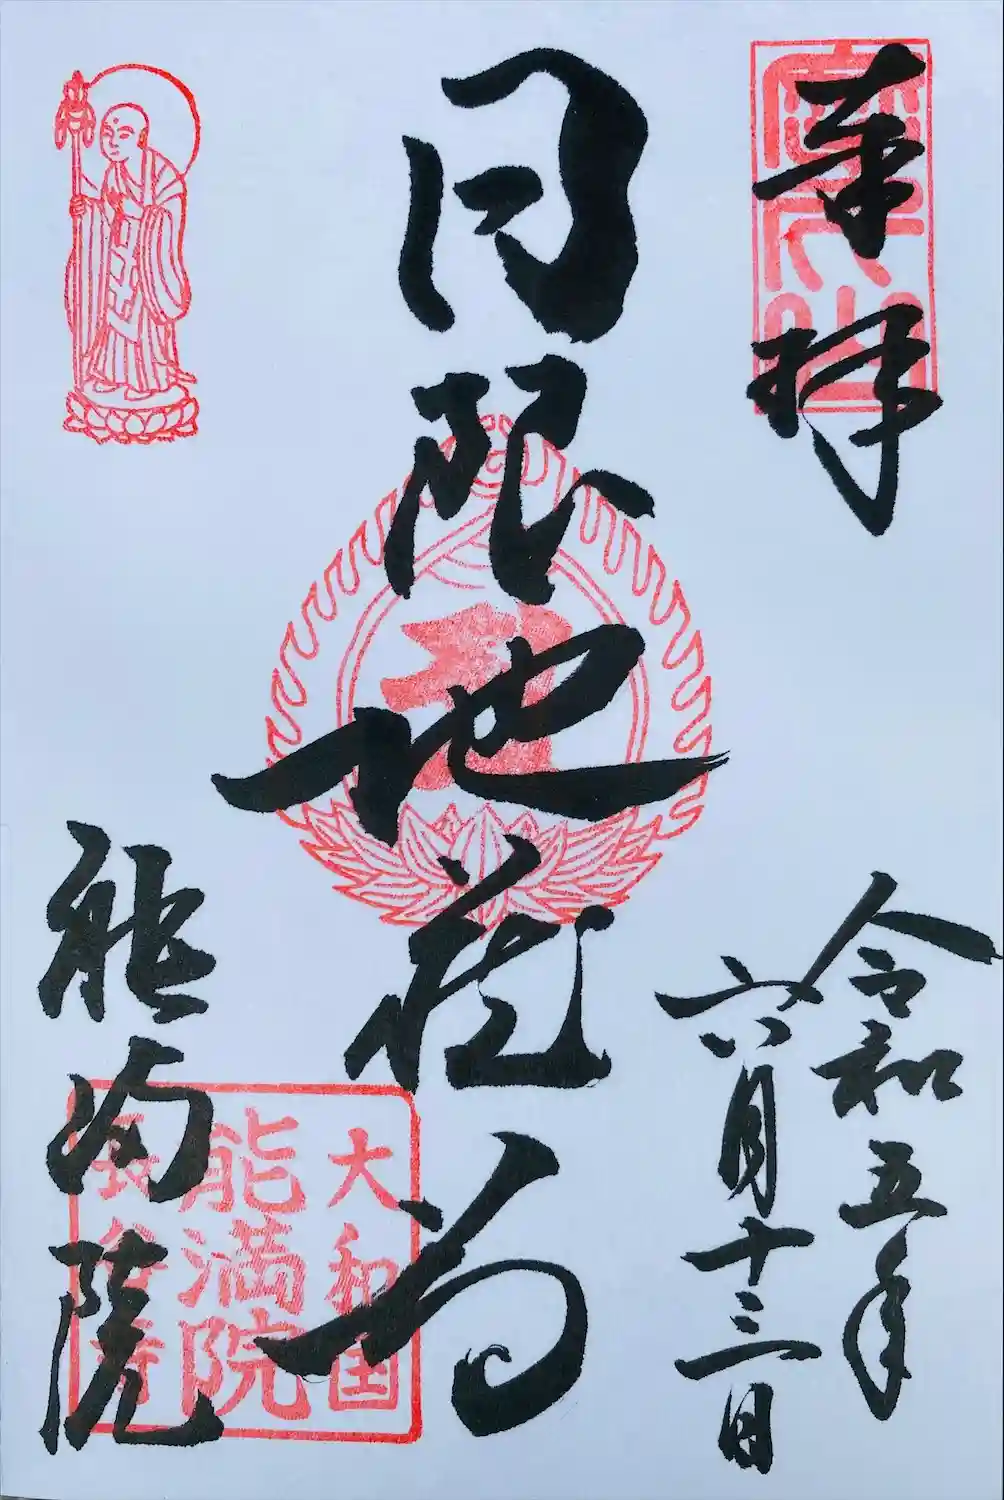 奉拝
令和五年
六月十三日
日限地蔵尊
能満院
大和国
能満院
長谷寺